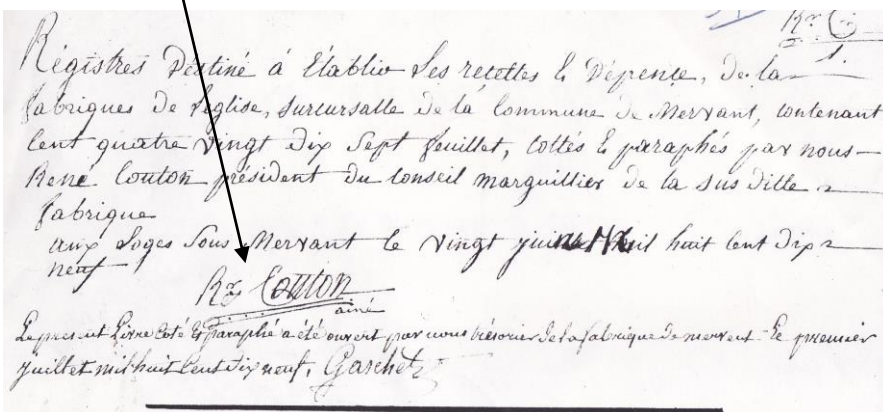 Rné C
1.
Régistres Déstiné à Etablir Les recettes & Dépence, De la
fabriques De L'eglise, sucursalle De la Commune De Mervant, contenant
Cent quatre Vingt Dix Sept feuillet, cottés & paraphés par nous
René Couton président Du Conseil marguillier De la sus Ditte
fabrique
aux Loges Sous Mervant le Vingt juin Mil huit Cent Dix
neuf
Rné Couton
ainé
Le present Livre Coté & paraphié a été ouvert par nous trésorier De la fabrique De mervent Le premier
Juillet mil huit Cent Dix neuf, Garchet